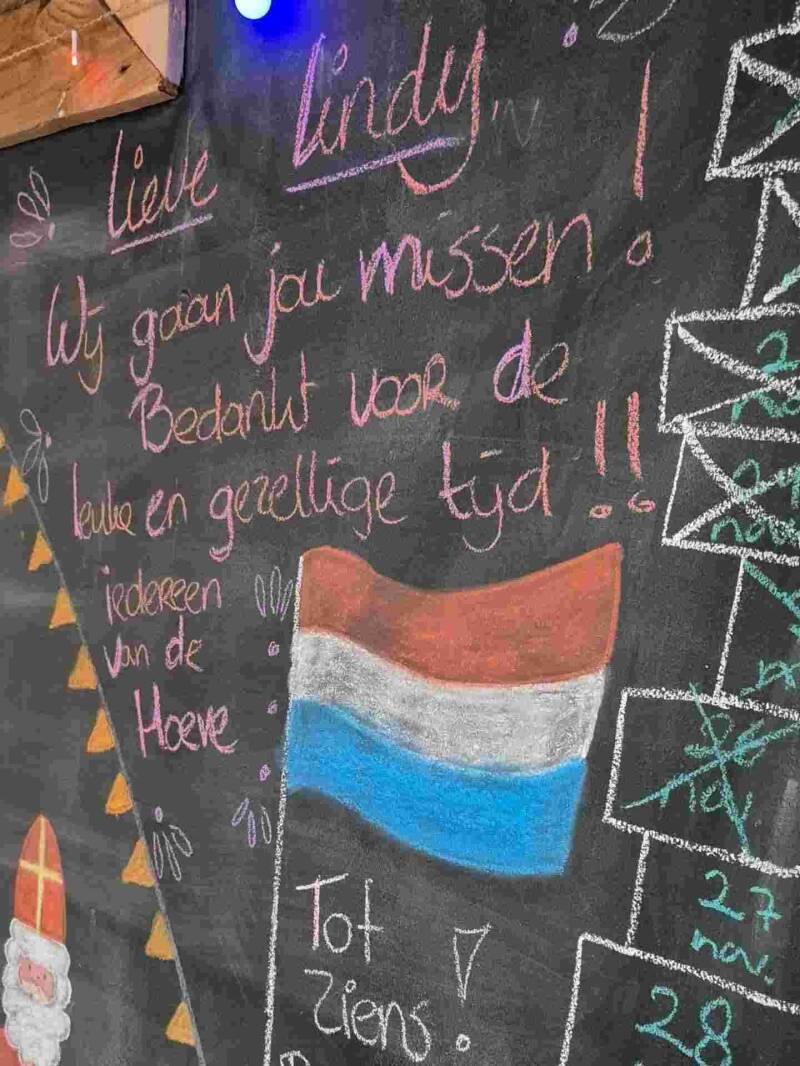 lieve lindy,
Wij gaan jou missen!
Bedankt voor de
leuke en gezellige tijd!!
iedereen
van de
Hoeve
Tot
Ziens!
nov.
nov
27
nov.
28